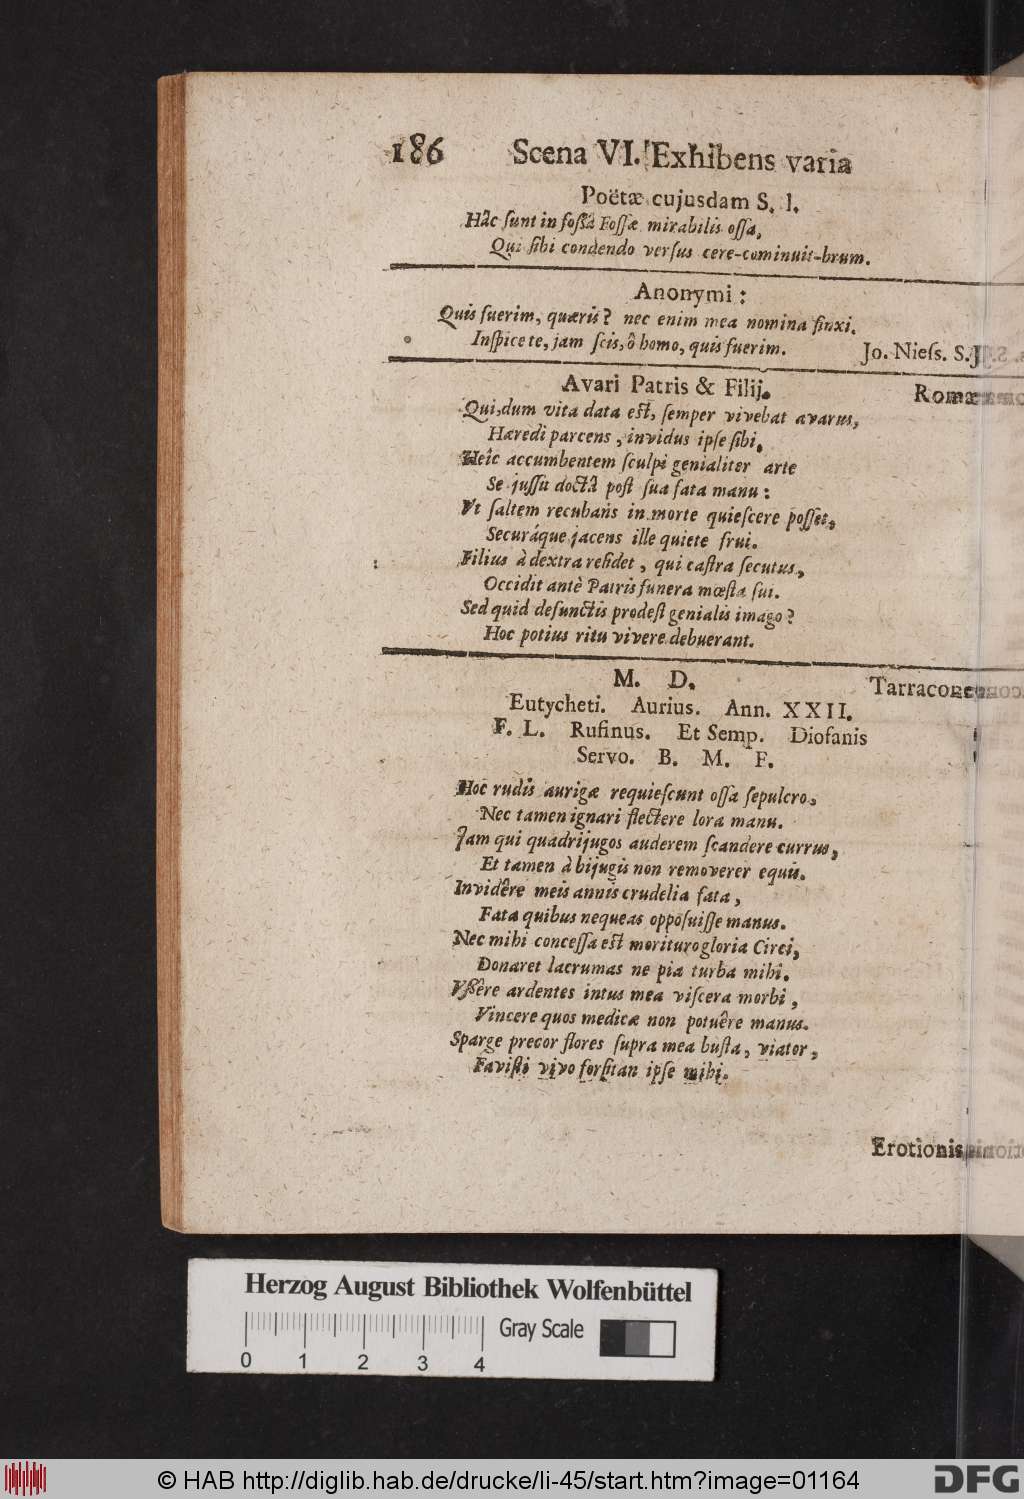 186 Scena VI. Exhibens varia
Poëtæ cujusdam S. l.
Hâc ſunt in foſſâ Foſſæ mirabilis oſſa,
Qui ſibi condendo verſus cere-cominuit-brum.
Anonymi:
Quis fuerim, quæris? nec enim mea nomina finxi.
Inſpice te, jam ſcis, ô homo, quis fuerim.
Jo. Nieſs. S.J.
Avari Patris & Filij. Romæ
Qui, dum vita data eſt, ſemper vivebat avarus,
Hæredi parcens, invidus ipſe ſibi.
Heîc accumbentem ſculpi genialiter arte
Se juſſit doctâ poſt ſua fata manu:
Vt ſaltem recubans in morte quieſcere poſſet,
Securáque jacens ille quiete frui.
Filius à dextra reſidet, qui caſtra ſecutus,
Occidit antè Patris funera mœſta ſui.
Sed quid defunctis prodeſt genialis imago?
Hoc potius ritu vivere debuerant.
M. D. Tarracone
Eutycheti. Aurius. Ann. XXII.
F. L. Rufinus. Et Semp. Diofanis
Servo. B. M. F.
Hoc rudis aurigæ requieſcunt oſſa ſepulcro,
Nec tamen ignari flectere lora manu.
Jam qui quadrijugos auderem ſcandere currus,
Et tamen à bijugis non removerer equis.
Invidêre meis annis crudelia fata,
Fata quibus nequeas oppoſuiſſe manus.
Nec mihi conceſſa eſt morituro gloria Circi,
Donaret lacrumas ne pia turba mihi.
Vſſêre ardentes intus mea viſcera morbi,
Vincere quos medicæ non potuêre manus.
Sparge precor flores ſupra mea buſta, viator,
Faviſti vivo forſitan ipſe mihi.
Erotionis
Herzog August Bibliothek Wolfenbüttel
Gray Scale
0 1 2 3 4
© HAB http://diglib.hab.de/drucke/li-45/start.htm?image=01164
DFG